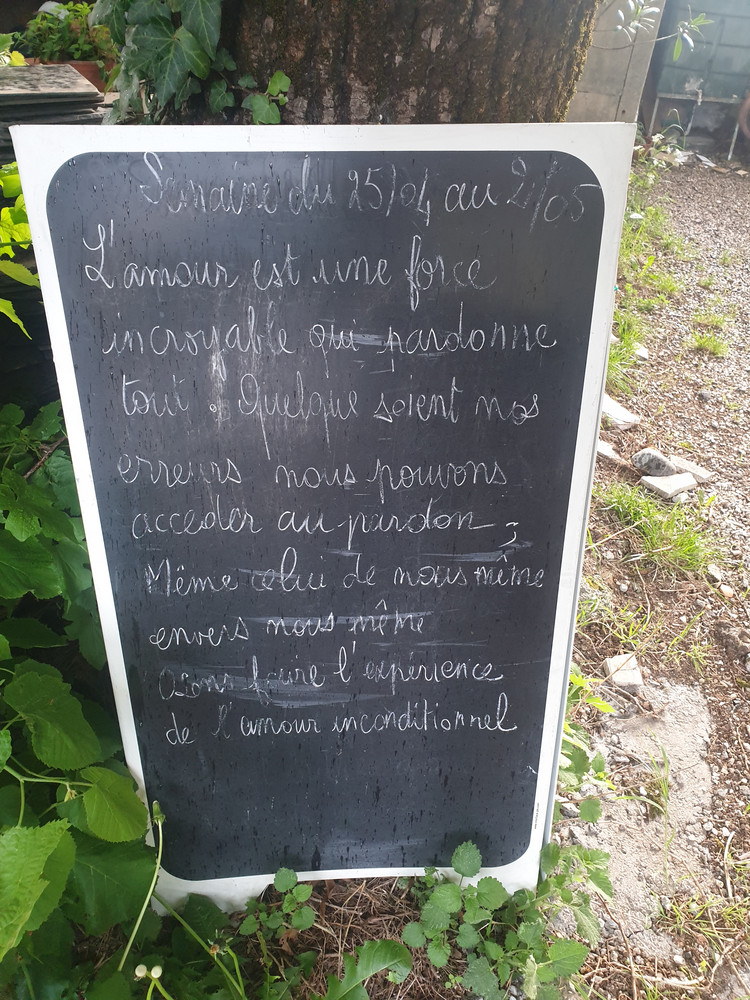 Semaine du 25/04 au 2/05
L'amour est une force
incroyable qui pardonne
tout. Quelque soient nos
erreurs nous pouvons
acceder au pardon
Même celui de nous même
envers nous même
Osons faire l'expérience
de l'amour inconditionnel